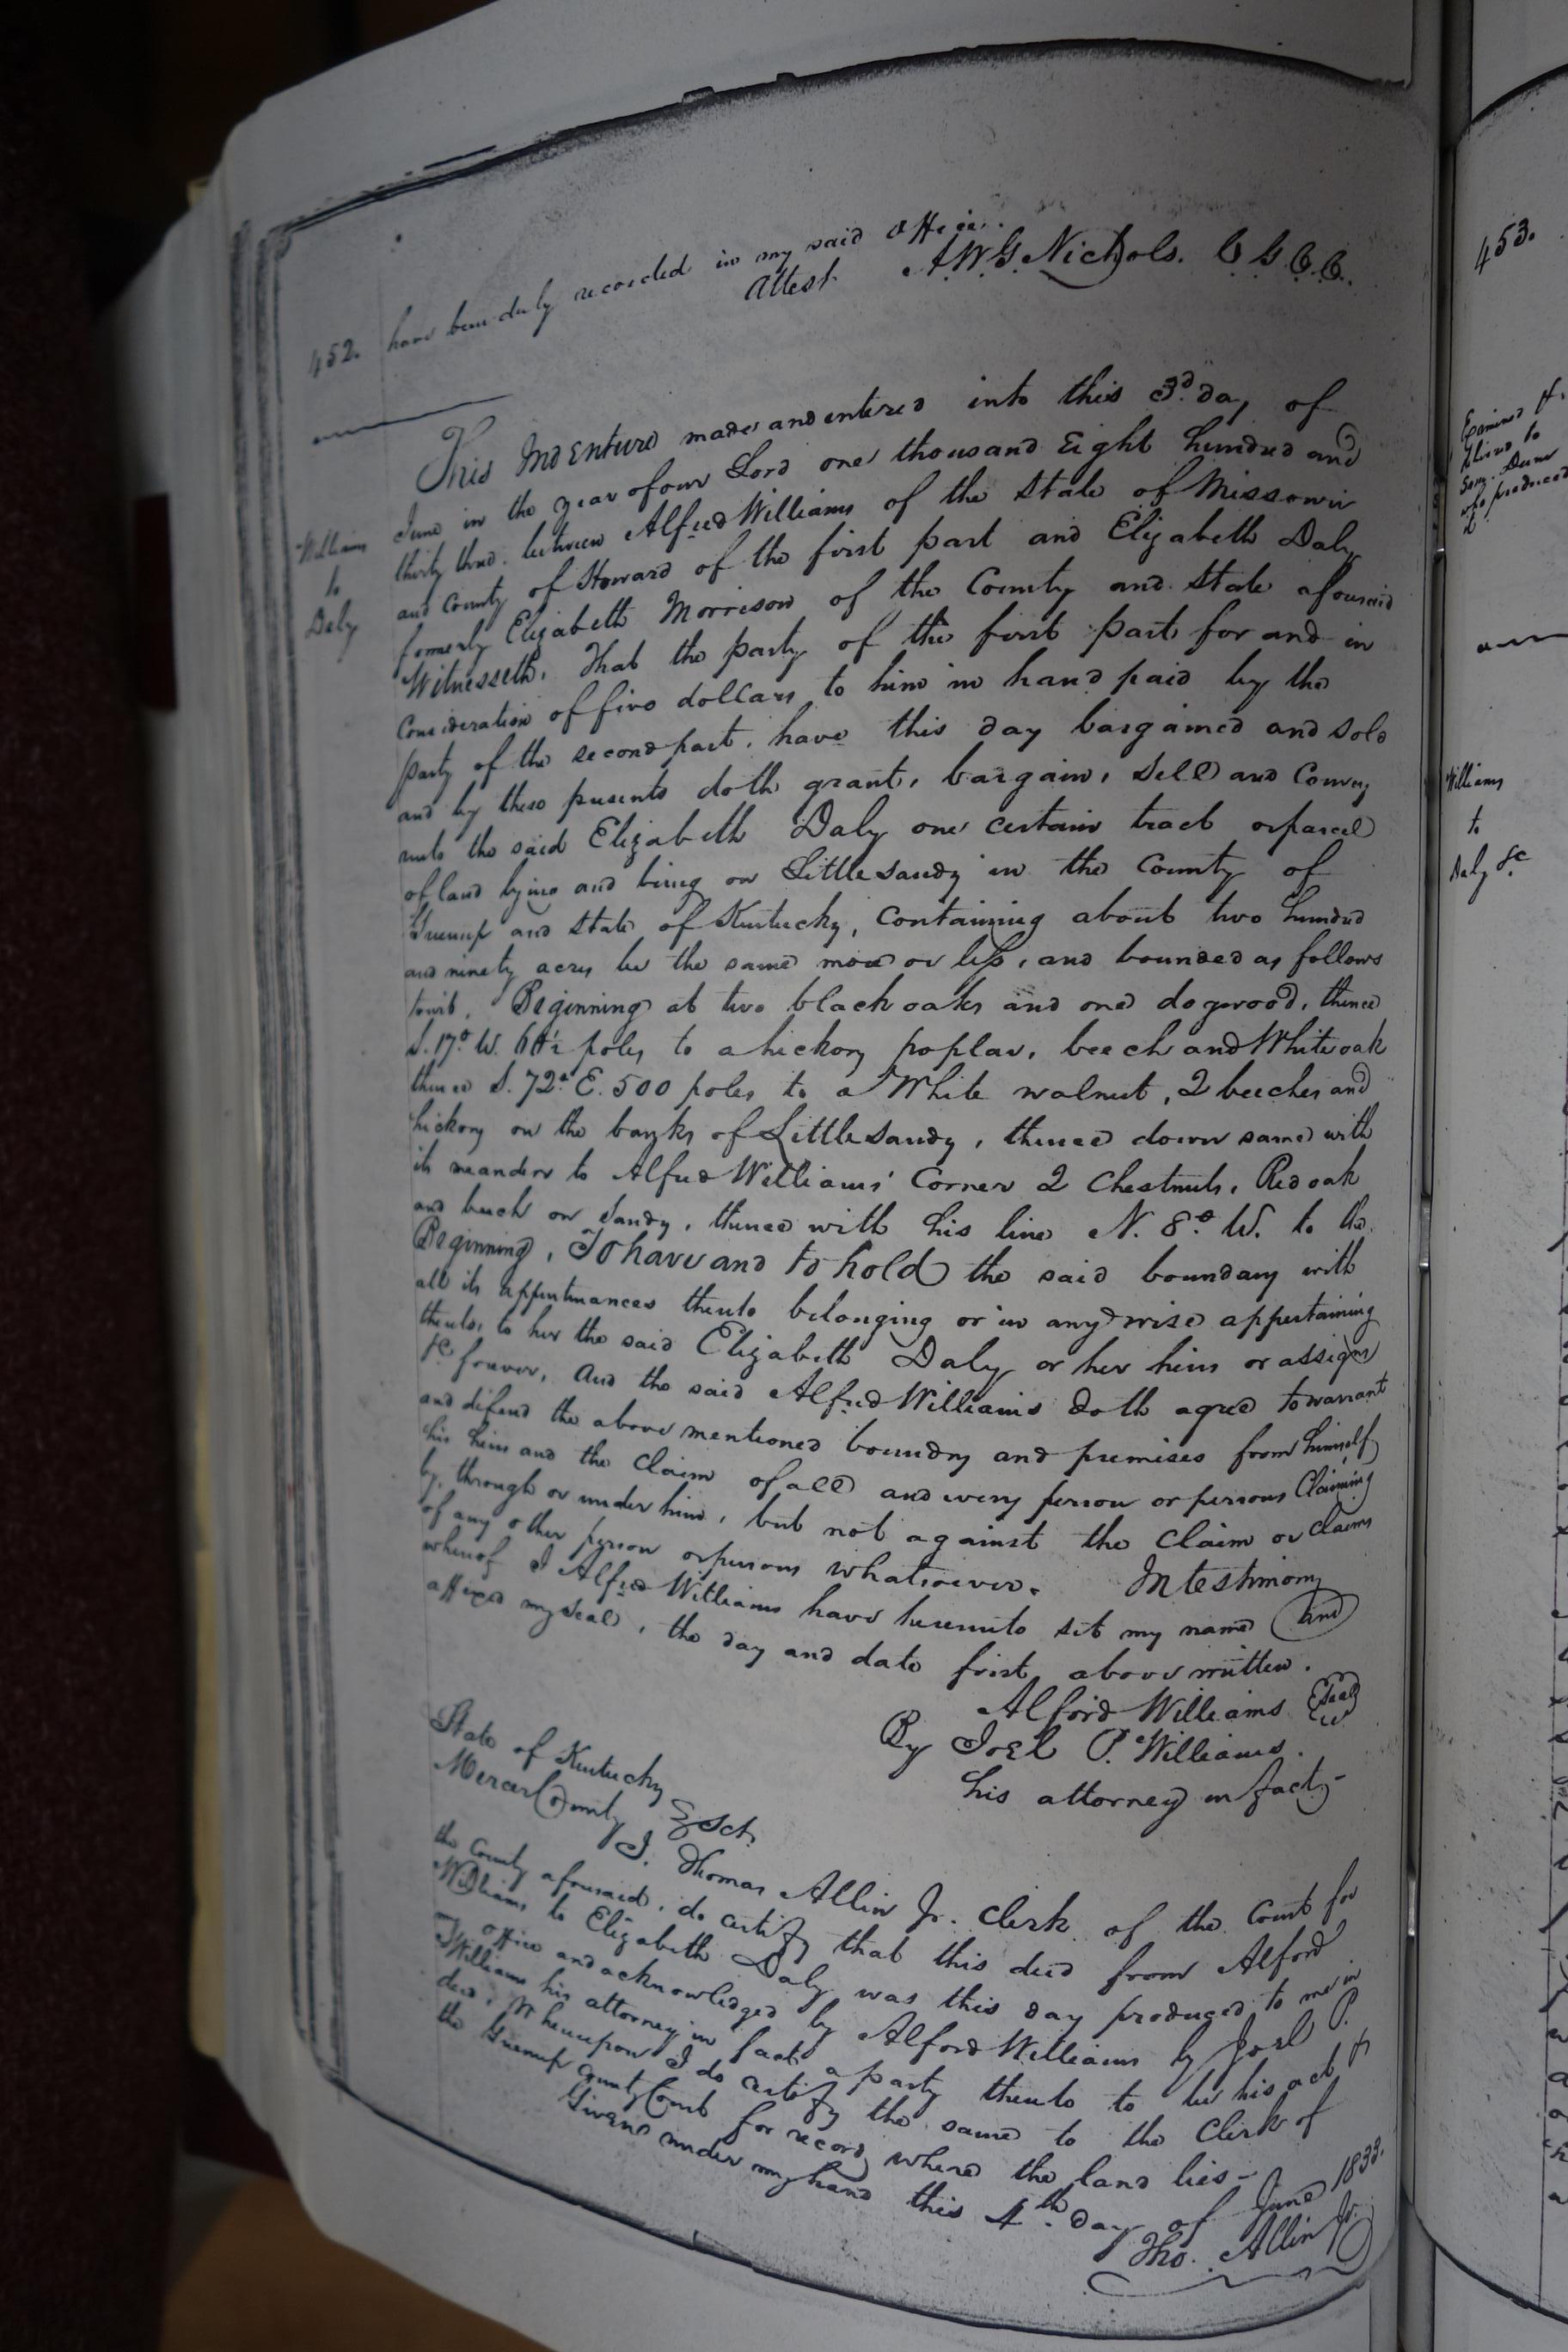 452. have been duly recorded in my said office.
Attest A.W.G. Nichols. C.G.C.C.
This Indenture made and entered into this 3d. day of
June in the year of our Lord one thousand Eight hundred and
thirty three. between Alfred Williams of the State of Missouri
and County of Howard of the first part and Elizabeth Daly
formerly Elizabeth Morrison of the County and State aforesaid
Witnesseth, That the party of the first part for and in
Consideration of five dollars to him in hand paid by the
party of the second part. have this day bargained and sold
and by these presents doth grant, bargain, Sell and Convey
unto the said Elizabeth Daly one certain tract or parcel
of land lying and being on Little Sandy in the County of
Greenup and State of Kentucky, Containing about two hundred
and ninety acres be the same more or less, and bounded as follows
towit. Beginning at two black oaks and one dogwood, thence
S. 17° W. poles to a hickory poplar, beech and White oak
thence S. 72° E. 500 poles to a White walnut, 2 beeches and
hickory on the banks of Little Sandy, thence down same with
its meanders to Alfred Williams' Corner 2 Chestnuts, Red oak
and beech on Sandy, thence with his line N. 8° W. to the
Beginning, To have and to hold the said boundary with
all its appurtenances thereto belonging or in anywise appertaining
thereto, to her the said Elizabeth Daly or her heirs or assigns
&c forever, And the said Alfred Williams doth agree to warrant
and defend the above mentioned boundry and premises from himself
his heirs and the Claim of all and every person or persons Claiming
by, through or under him, but not against the Claim or Claims
of any other person or persons whatsoever. In testimony
whereof I Alfred Williams have hereunto set my name and
affixed my seal, the day and date first above written.
Alford Williams Seal
By Joel P. Williams.
his attorney in fact
State of Kentucky
Mercer County Sct.
I. Thomas Allin Jr. Clerk of the Court for
the County aforesaid, do certify that this deed from Alford
Williams to Elizabeth Daly was this day produced to me in
my office and acknowledged by Alford Williams by Joel P.
Williams his attorney in fact a party thereto to be his act &
deed, Whereupon I do certify the same to the Clerk of
the Greenup County Court for record, where the land lies-
Given under my hand this 4th. day of June 1833.
Tho. Allin Jr.
Williams
to
Daly
453.
Examined &
to
who produced
Williams
to
Daly &c